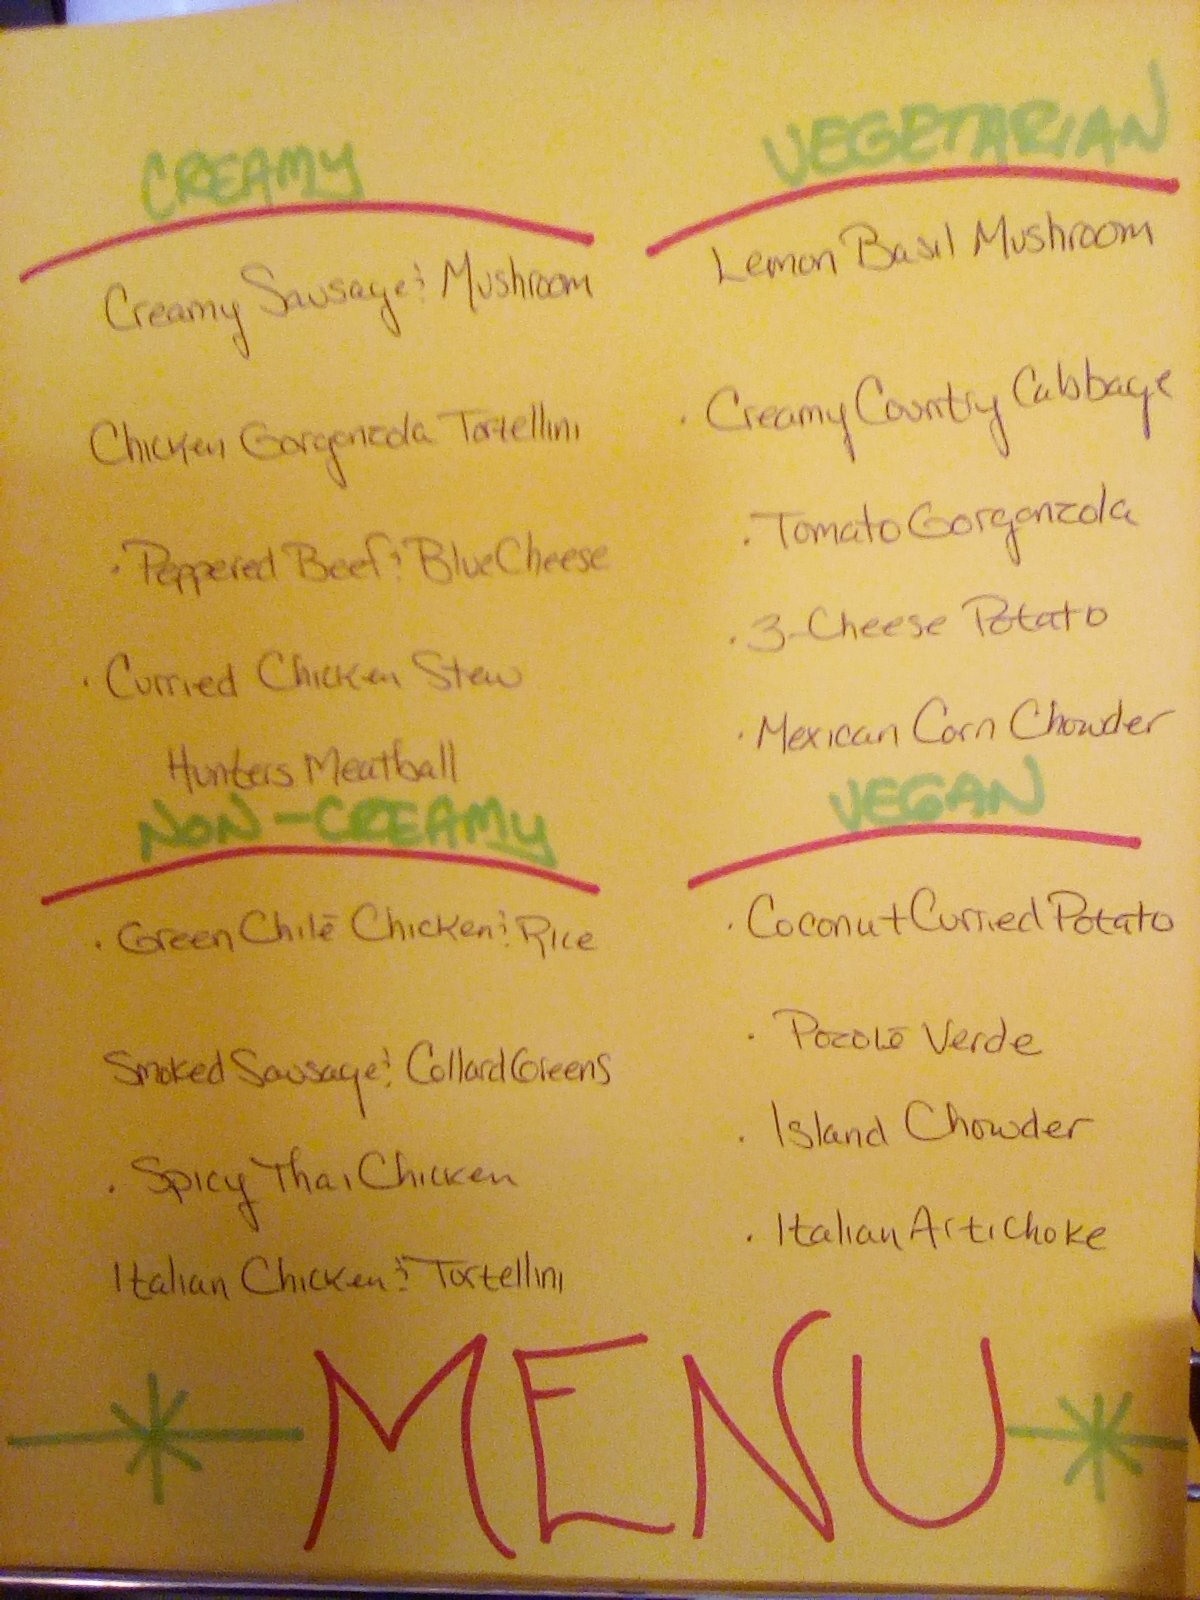 CREAMY
Creamy Sausage & Mushroom
Chicken Gorgonzola Tortellini
· Peppered Beef & Blue Cheese
· Curried Chicken Stew
Hunters Meatball
NON-CREAMY
· Green Chilē Chicken & Rice
Smoked Sausage & Collard Greens
· Spicy Thai Chicken
Italian Chicken & Tortellini
VEGETARIAN
Lemon Basil Mushroom
· Creamy Country Cabbage
· Tomato Gorgonzola
· 3-Cheese Potato
· Mexican Corn Chowder
VEGAN
· Coconut Curried Potato
· Pozolē Verde
· Island Chowder
· Italian Artichoke
MENU